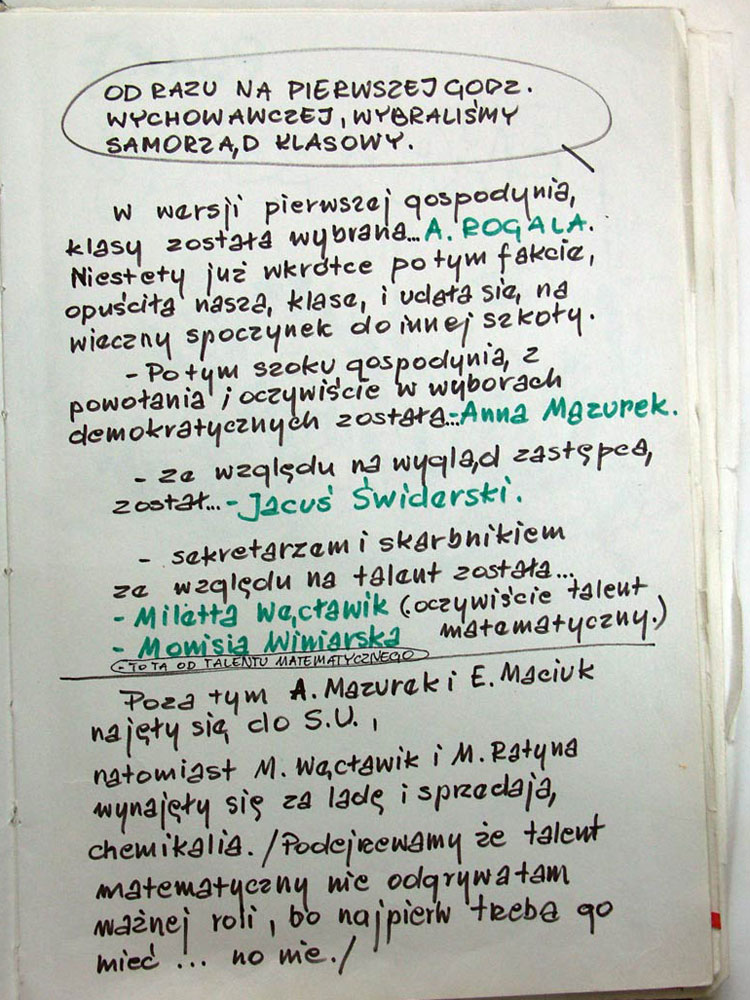 OD RAZU NA PIERWSZEJ GODZ.
WYCHOWAWCZEJ, WYBRALIŚMY
SAMORZĄD KLASOWY.
W wersji pierwszej gospodynią,
klasy została wybrana... A. ROGALA.
Niestety już wkrótce po tym fakcie,
opuściła naszą, klasę, i udała się, na
wieczny spoczynek do innej szkoły.
- Po tym szoku gospodynią, z
powołania i oczywiście w wyborach
demokratycznych została...- Anna Mazurek.
- ze względu na wygląd zastępcą,
został...- Jacuś Świderski.
- sekretarzem i skarbnikiem
ze względu na talent została...
- Miletta Wącławik (oczywiście talent
- Monisia Winiarska matematyczny.)
- TO TA OD TALENTU MATEMATYCZNEGO
Poza tym A. Mazurek i E. Maciuk
najęły się do S.U.,
natomiast M. Wącławik i M. Ratyna
wynajęły się za ladę i sprzedają,
chemikalia. /Podejrzewamy że talent
matematyczny nie odgrywa tam
ważnej roli, bo najpierw trzeba go
mieć ... no nie./